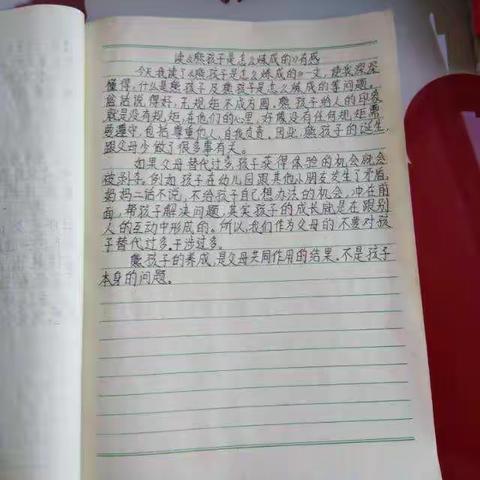 读《熊孩子是怎么炼成的》有感
今天我读了《熊孩子是怎么炼成的》一文,使我深深
懂得,什么是熊孩子及熊孩子是怎么炼成的等问题。
俗话说得好,无规矩不成方圆,熊孩子给人的印象
就是没有规矩,在他们的心里,好像没有任何规矩需
要遵守,包括尊重他人,自我负责。因此,熊孩子的诞生,
跟父母少做了很多事有关。
如果父母替代过多,孩子获得体验的机会就会
被剥夺。例如孩子在幼儿园跟其他小朋友发生了矛盾,
妈妈二话不说,不给孩子自己想办法的机会,冲在前
面,帮孩子解决问题,其实孩子的成长就是在跟别
人的互动中形成的。所以,我们作为父母的不要对孩
子替代过多,干涉过多。
熊孩子的养成,是父母共同作用的结果,不是孩子
本身的问题。